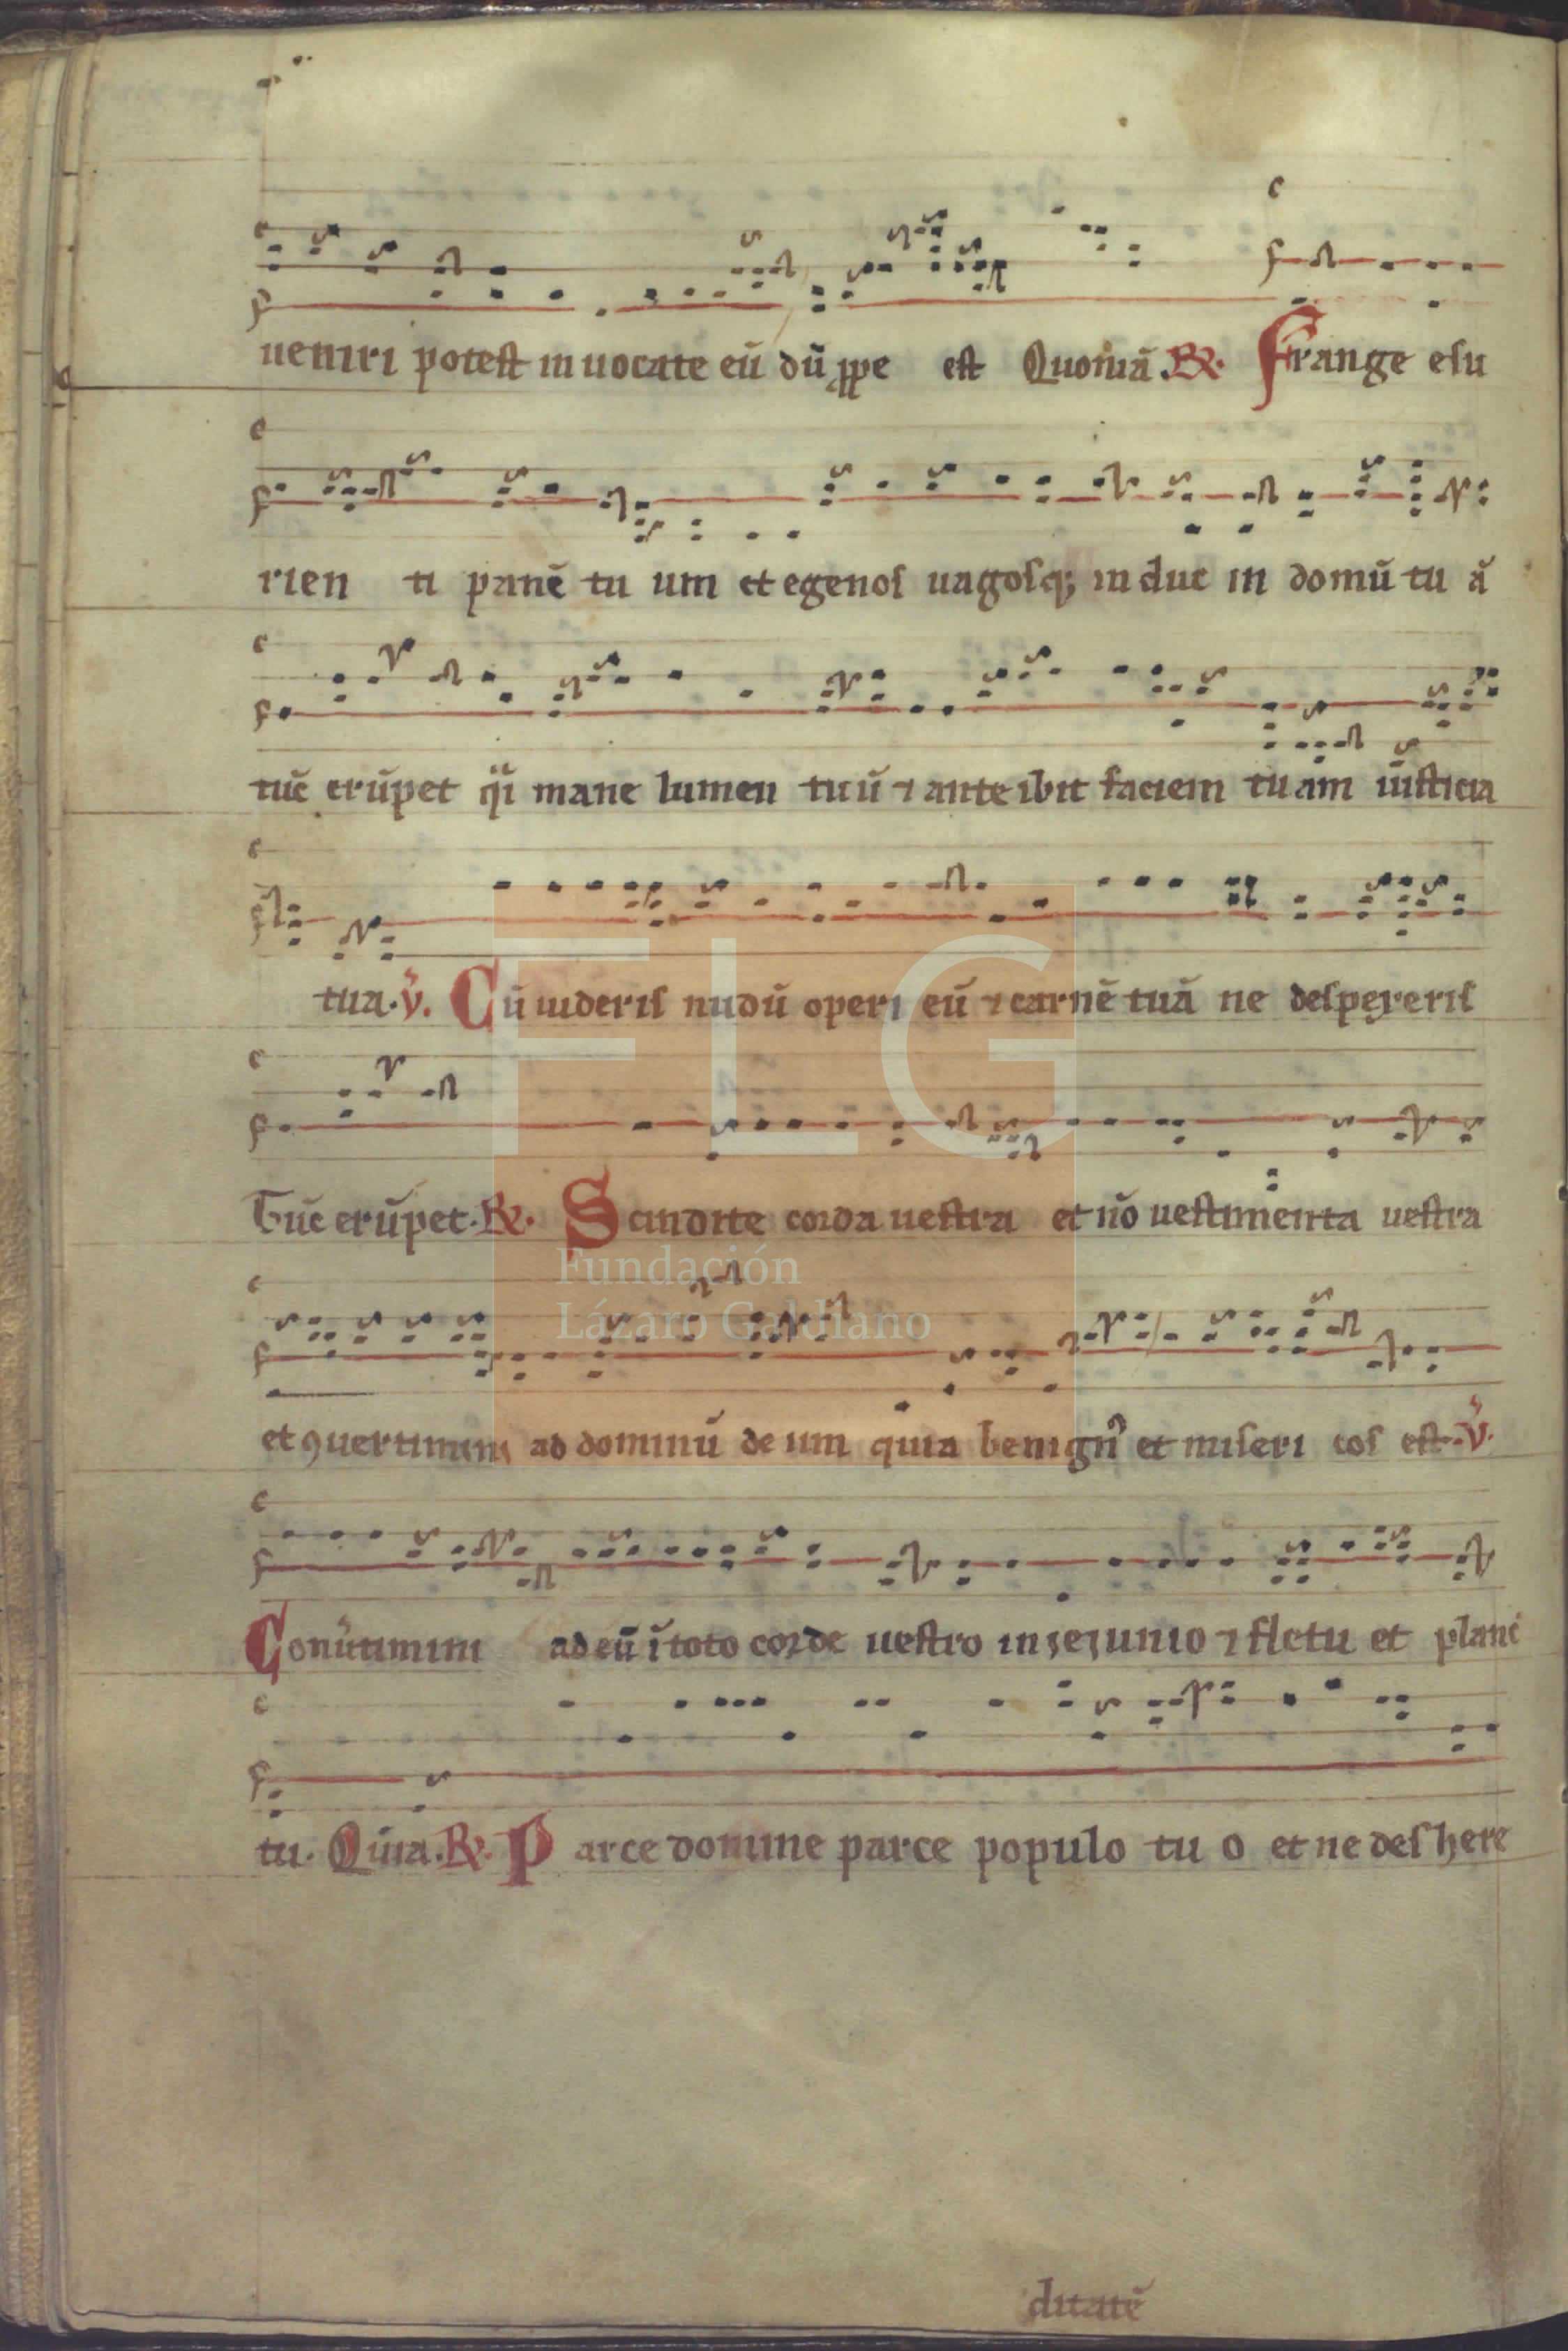 ueniri poteſt inuocate eū dū ꝓpe eſt Quoniā. ℟. Frange eſu
rien ti panē tu um et egenoſ uagoſq; induc in domū tu ā
tūc erūpet qͣi mane lumen tuū ⁊ ante ibit faciem tuam iuſticia
tua. ℣. Cū uideriſ nudū operi eū ⁊ carnē tuā ne deſpexeriſ
Tūc erūpet. ℟. Scindite corda ueſtra et nō ueſtimenta ueſtra
et ꝯuertimini ad dominū de um quia benignꝰ et miſeri coſ eſt. ℣.
Conūtimini ad eū ī toto corde ueſtro in jejunio ⁊ fletu et planc
tu. Quia. ℟. Parce domine parce populo tu o et ne deſ here
ditatē
FLG
Fundación
Lázaro Galdiano